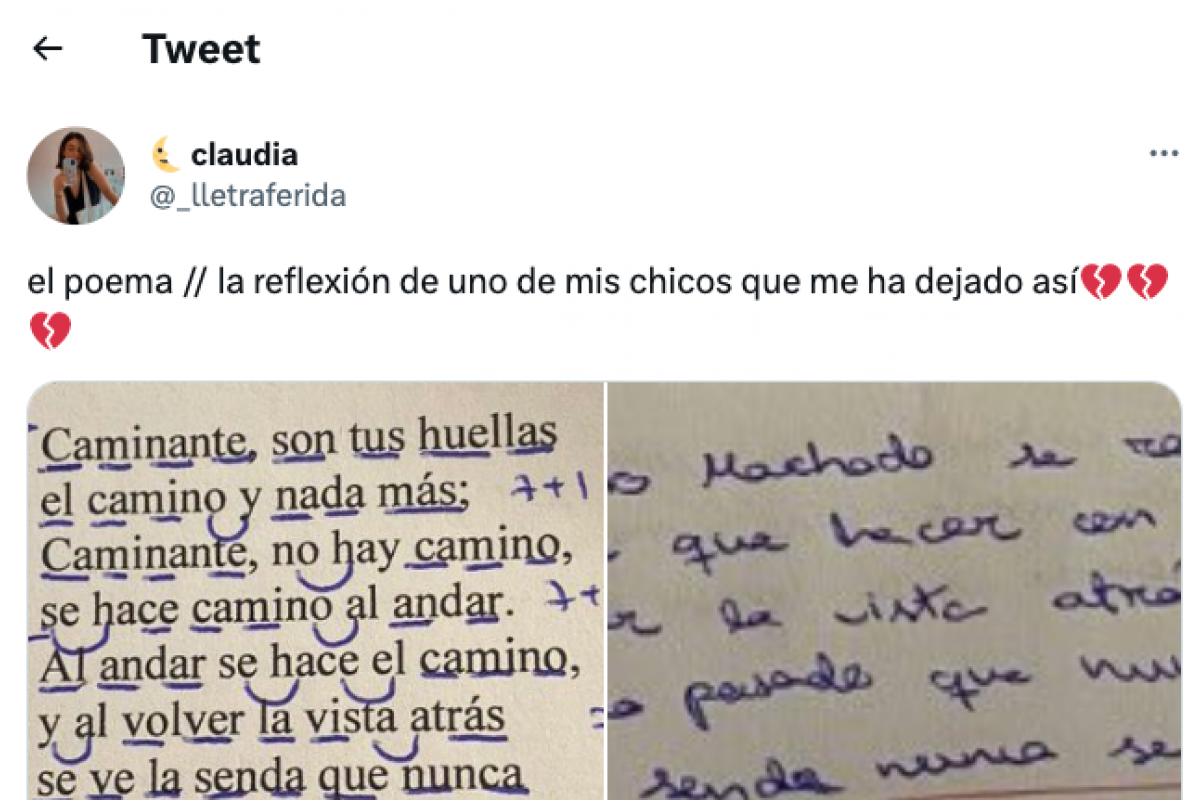 Tweet
claudia
@_lletraferida
el poema // la reflexión de uno de mis chicos que me ha dejado así
Caminante, son tus huellas
el camino y nada más; 7+1
Caminante, no hay camino,
se hace camino al andar. 7+
Al andar se hace el camino,
y al volver la vista atrás
se ve la senda que nunca
Machado se
que hacer con
la vista atrá
pasado que nun
senda nunca se